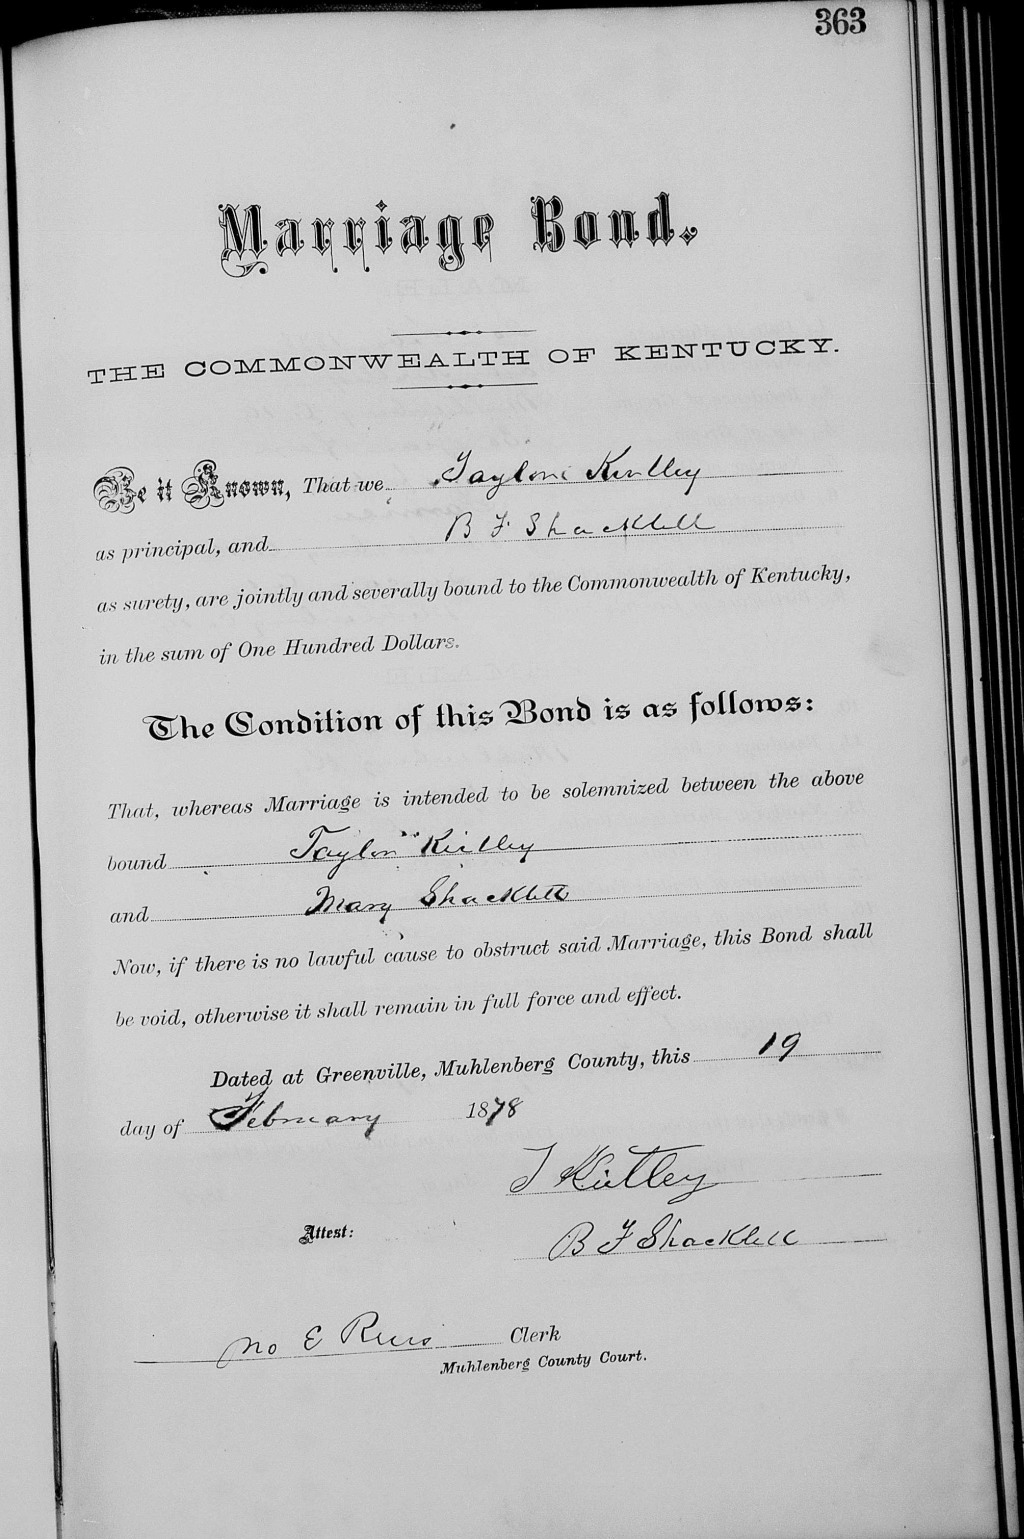 363
Marriage Bond.
THE COMMONWEALTH OF KENTUCKY.
Be it Known, That we Taylor Kirtley
as principal, and B F Shacklett
as surety, are jointly and severally bound to the Commonwealth of Kentucky,
in the sum of One Hundred Dollars.
The Condition of this Bond is as follows:
That, whereas Marriage is intended to be solemnized between the above
bound Taylor Kirtley
and Mary Shacklett
Now, if there is no lawful cause to obstruct said Marriage, this Bond shall
be void, otherwise it shall remain in full force and effect.
Dated at Greenville, Muhlenberg County, this 19
day of February 1878
T Kirtley
Attest:
B F Shacklett
E Clerk
Muhlenberg County Court.